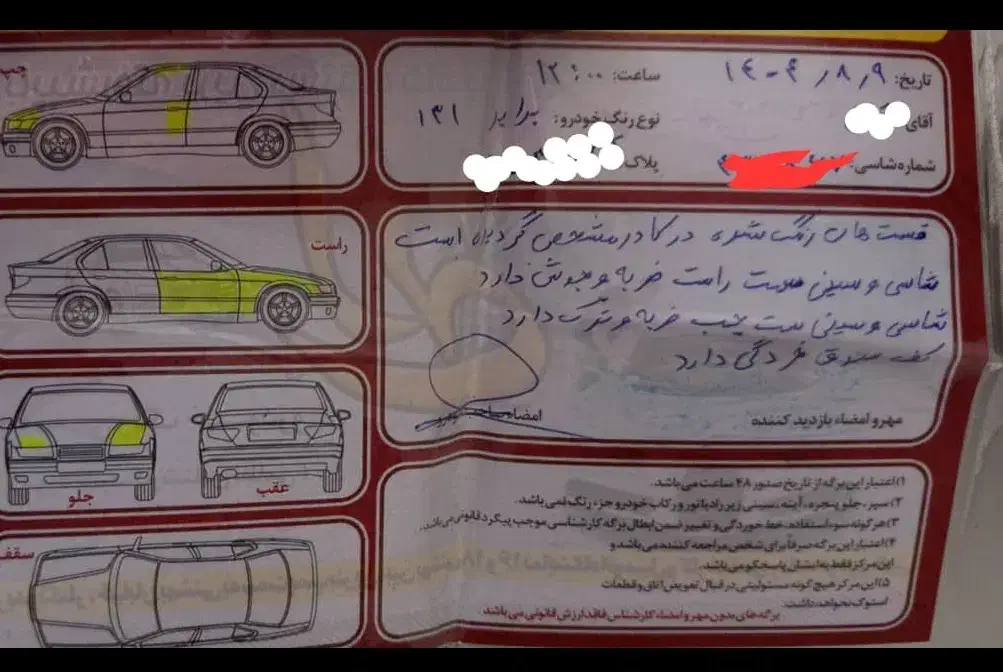 چپ
تاریخ: ۱۴۰۴/۸/۹ ساعت: ۱۲:۰۰
آقای نوع رنگ خودرو: پراید ۱۳۱
شماره شاسی: پلاک
راست
قسمت های رنگ شده در کادر مشخص گردیده است
شاسی و سینی سمت راست ضربه و جوش دارد
شاسی و سینی سمت چپ ضربه و ترک دارد
کف صندوق خوردگی دارد
مهر و امضاء بازدید کننده امضاء
جلو
عقب
سقف
۱) اعتبار این برگه از تاریخ صدور ۴۸ ساعت می باشد.
۲) سپر، جلو پنجره، آینه، سینی زیر رادیاتور و رکاب خودرو جزء رنگ نمی باشد.
۳) هرگونه سوء استفاده، خط خوردگی و تغییر ضمن ابطال برگه کارشناسی موجب پیگرد قانونی می باشد.
۴) اعتبار این برگه صرفاً برای شخص مراجعه کننده می باشد و
این مرکز فقط به ایشان پاسخگو می باشد.
۵) این مرکز هیچ گونه مسئولیتی در قبال تعویض اتاق و قطعات
استوک نخواهد داشت.
برگه های بدون مهر و امضاء کارشناس فاقد ارزش قانونی می باشد.